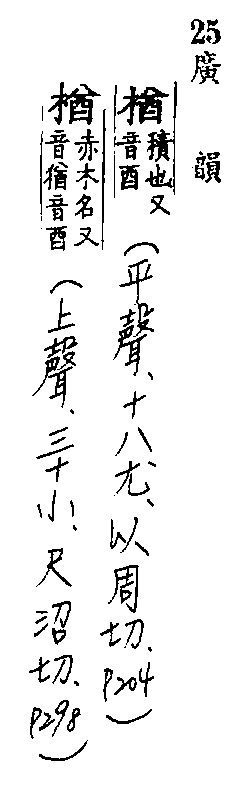 25廣韻
楢積也又音酉(平聲、十八尤、以周切、P204)
楢赤木名又音猶音酉(上聲、三十小、尺沼切、P298)